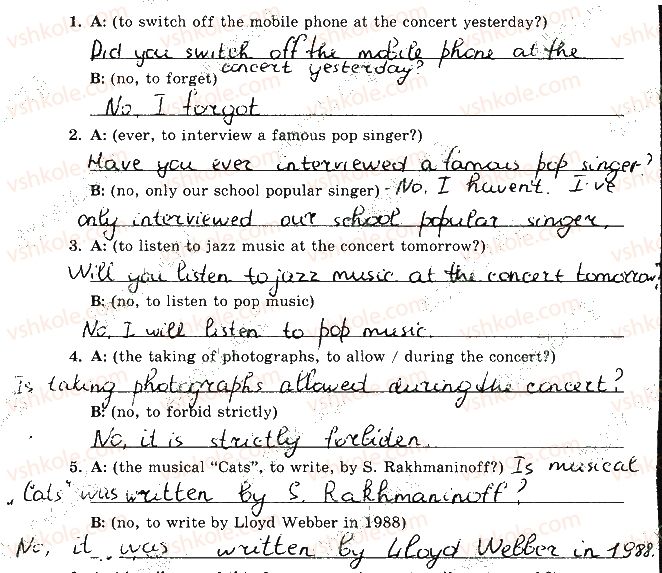 1. A: (to switch off the mobile phone at the concert yesterday?)
Did you switch off the mobile phone at the
concert yesterday?
B: (no, to forget)
No, I forgot
2. A: (ever, to interview a famous pop singer?)
Have you ever interviewed a famous pop singer?
B: (no, only our school popular singer) - No, I haven't. I've
only interviewed our school popular singer.
3. A: (to listen to jazz music at the concert tomorrow?)
Will you listen to jazz music at the concert tomorrow?
B: (no, to listen to pop music)
No, I will listen to pop music.
4. A: (the taking of photographs, to allow / during the concert?)
Is taking photographs allowed during the concert?
B: (no, to forbid strictly)
No, it is strictly forbiden.
5. A: (the musical “Cats”, to write, by S. Rakhmaninoff?) Is musical
„Cats" was written by S. Rakhmaninoff?
B: (no, to write by Lloyd Webber in 1988)
No, it was written by Lloyd Webber in 1988.